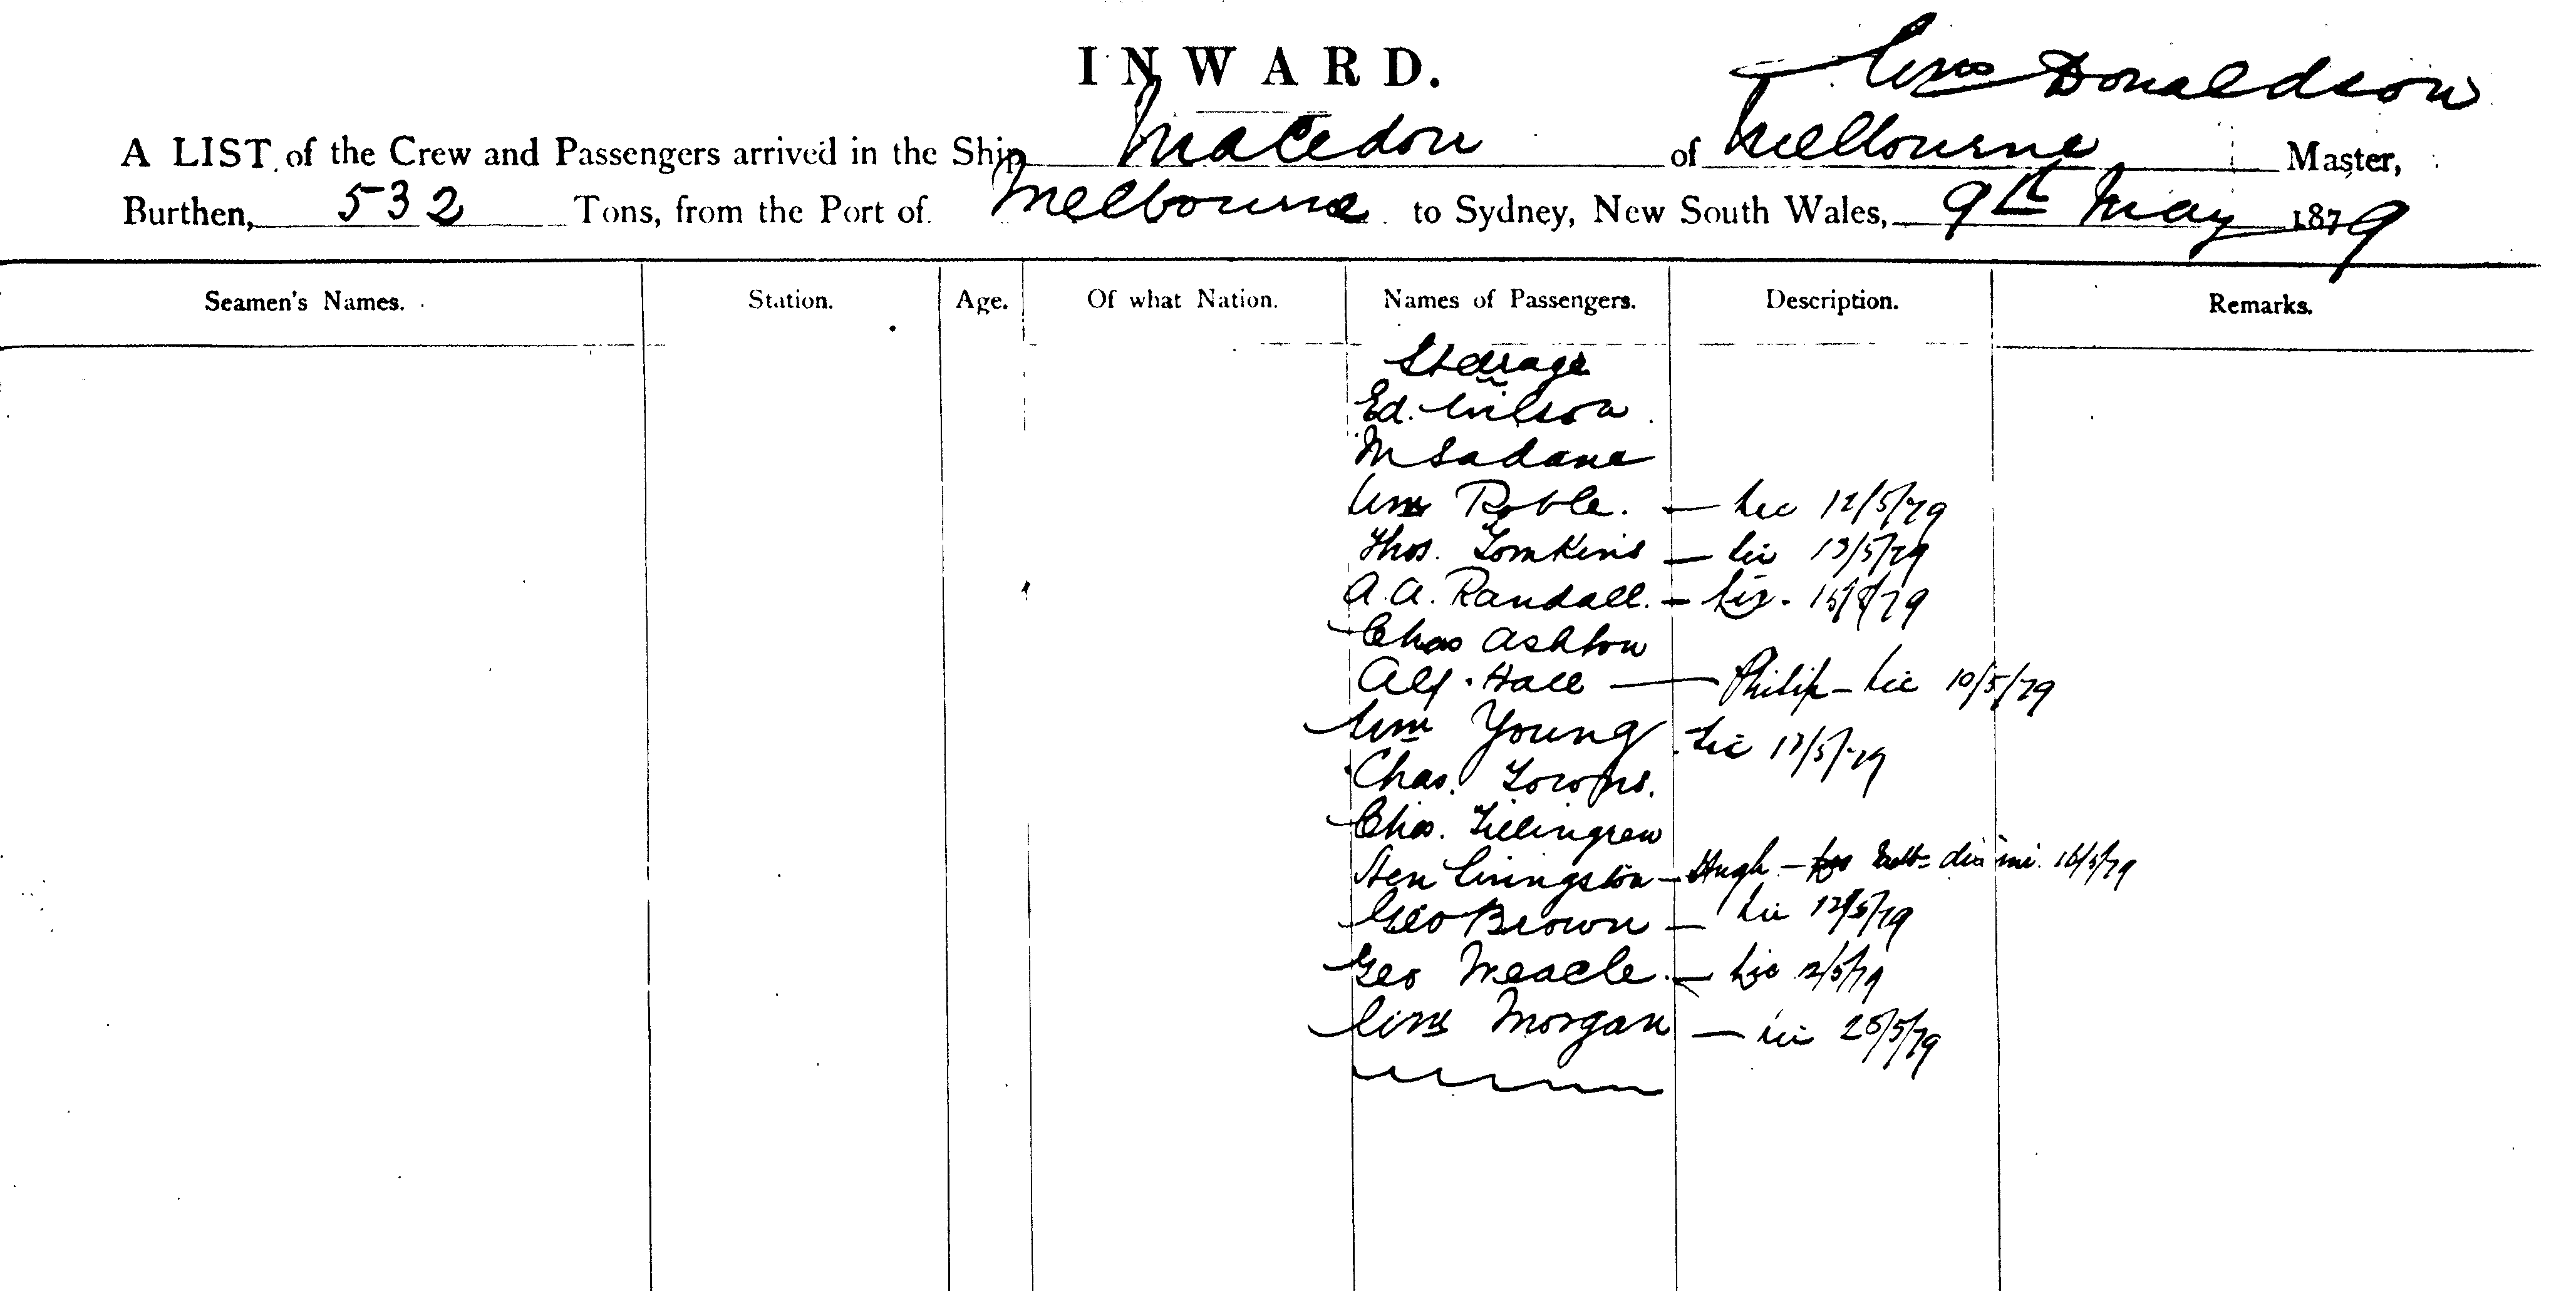 INWARD.
Wm Donaldson
A LIST of the Crew and Passengers arrived in the Ship Macedon of Melbourne Master,
Burthen, 532 Tons, from the Port of Melbourne to Sydney, New South Wales, 9th May 1879
Seamen's Names. Station. Age. Of what Nation. Names of Passengers. Description. Remarks.
Steerage
Ed. Wilson
M Sadane
Wm Roble. — Lic 12/5/79
Thos. Tomkins — Lic 13/5/79
A. A. Randall. —
Chas Ashton
Alf. Hall — Philip — Lic 10/5/79
Wm Young Lic 17/5/79
Chas.
Chas.
Hen Livingston — Hugh — 16/5/79
Geo Brown — Lic
Geo Meacle — Lic 12/5/79
Wm Morgan — Lic 20/5/79